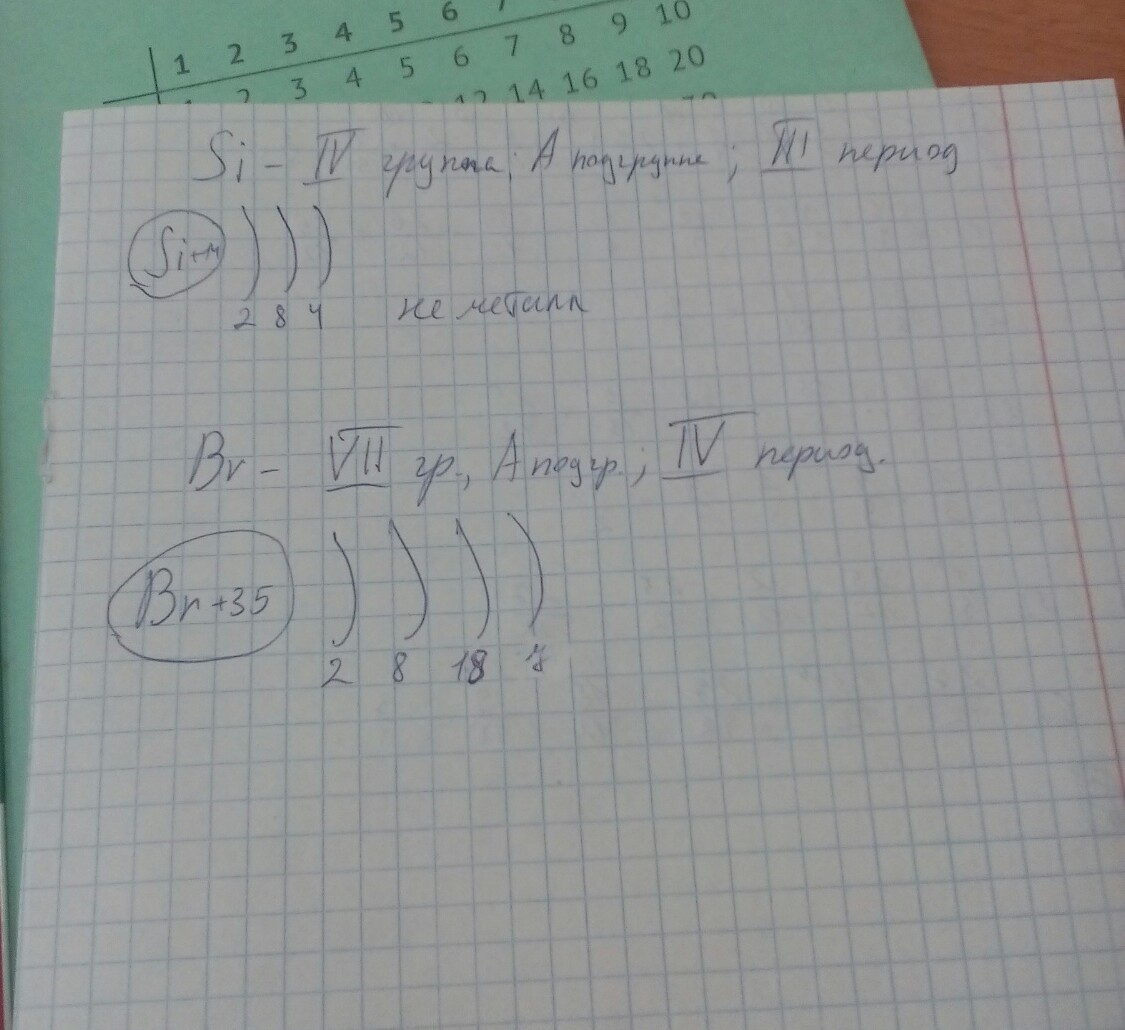 1 2 3 4 5 6
2 3 4 5 6 7 8 9 10
12 14 16 18 20
Si - IV группа; А подгруппа; III период
Si+14
2 8 4 не металл
Br - VII гр., А подгр.; IV период.
Br+35
2 8 18 7